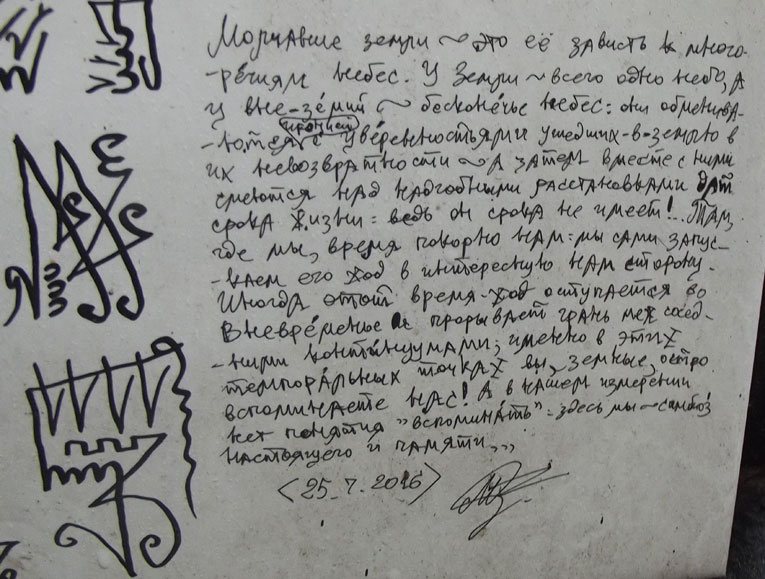 Молчание земли ~ это её зависть к много-
-речиям небес. У Земли ~ всего одно небо, а
у вне-зе́мий ~ бесконе́чье небес: они обменива-
иронией
-ются с уве́ренностьями ушедших-в-землю в
их невозвратности ~ а затем вместе с ними
смеются над надгробными расстановками дат
срока жизни: ведь он срока не имеет!.. Там,
где мы, время покорно нам: мы сами запус-
-каем его ход в интересную нам сторону.
Иногда этот время-ход оступается во
Вневре́менье и прорывает грань меж сосед-
-ними конти́нуумами; именно в этих
темпора́льных точках вы, земные, остро
вспоминаете нас! А в нашем измерении
нет понятия "вспомина́ть": здесь мы ~ симбоз
настоящего и памяти,,,
<25.7.2016>